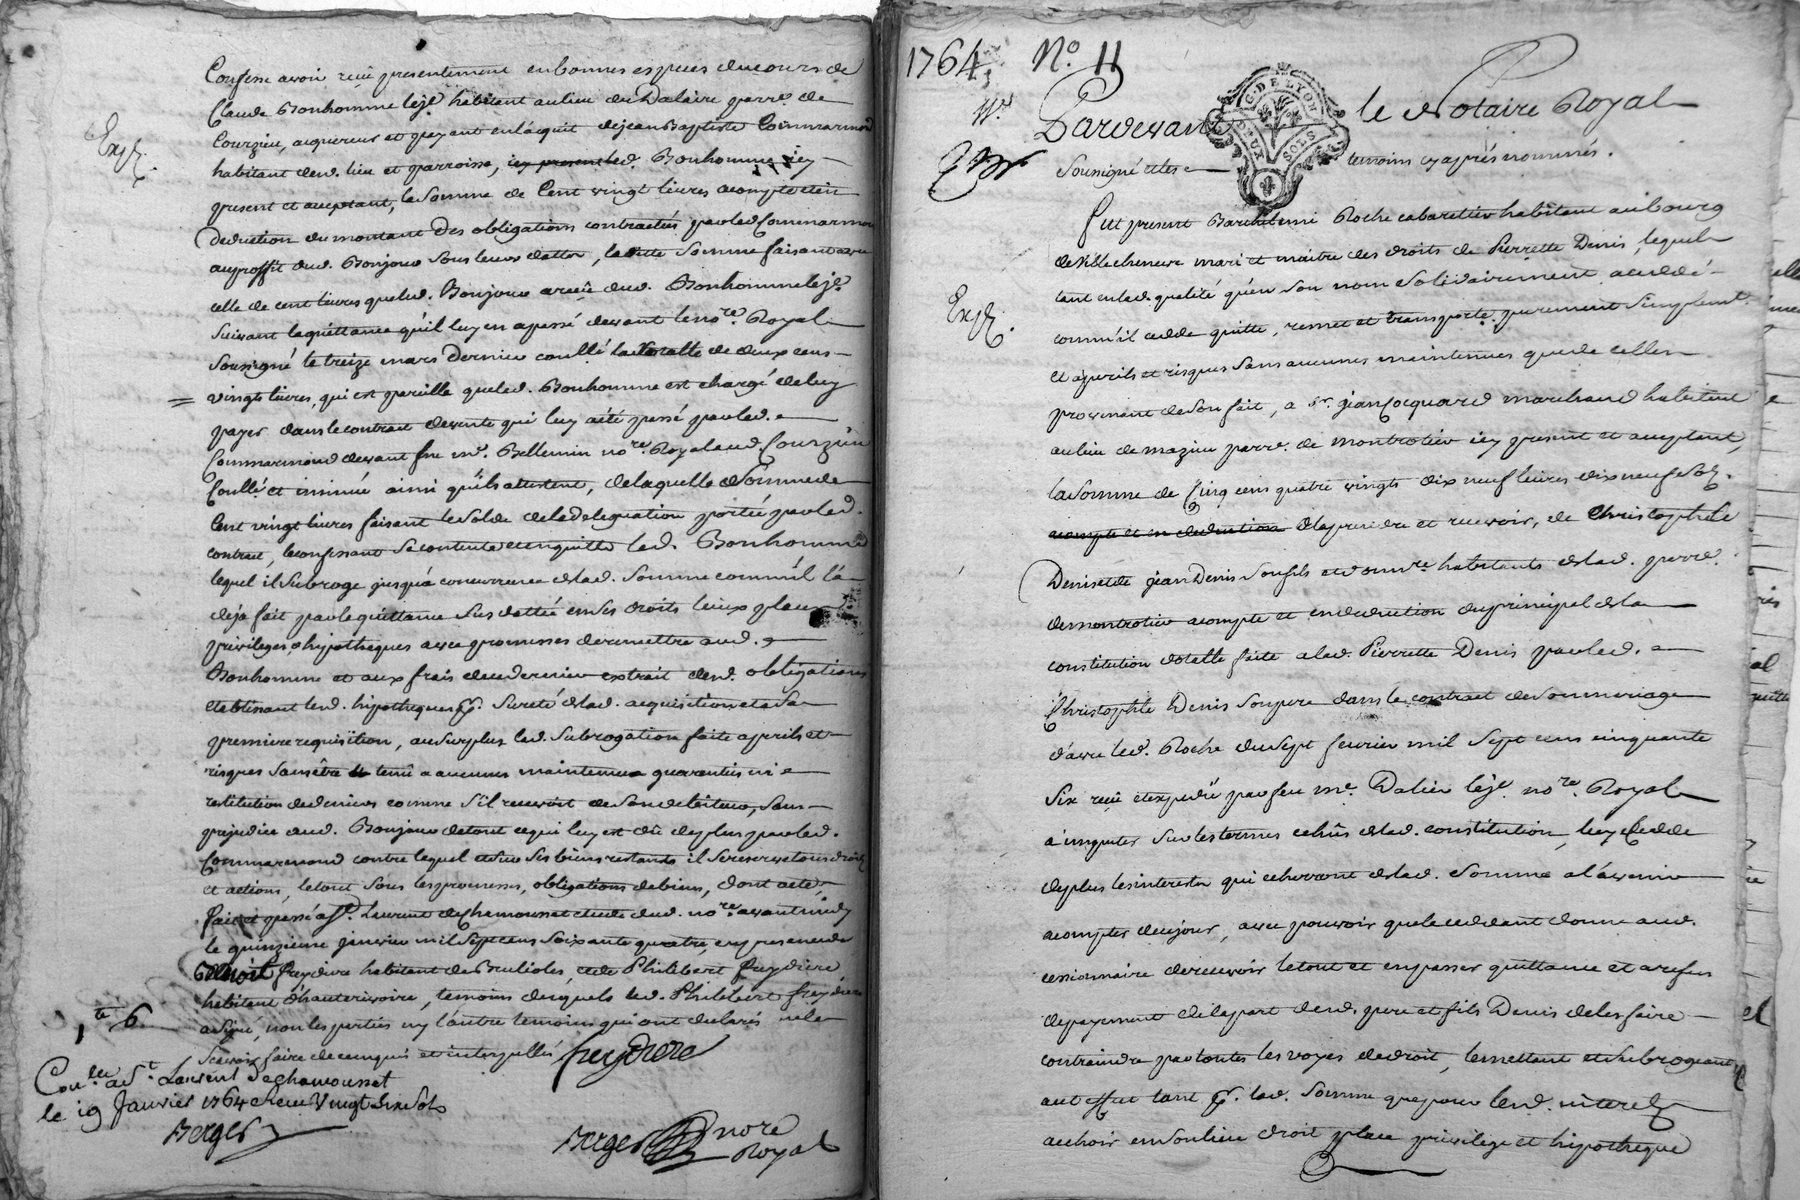 Confesse avoir reçu presentement en bonnes especes du cours de
Claude Bonhomme le je. habitant au lieu du Dalaire parre. de
Courzieu, acquereur et payant en l'acquit de jean Baptiste Commarmond
Exp.
habitant dud. lieu et parroisse, icy present led. Bonhomme icy
present et acceptant, la somme de Cent vingt livres acompte et en
deduction du montant des obligations contractés par led Commarmond
au proffit dud. Bonjour sous leurs dattes, laditte somme faisant avec
celle de cent livres que led. Bonjour a reçu dud. Bonhomme le je.
suivant la quittance qu'il luy en a passé devant le nore. Royal
soussigné le treize mars dernier conllé la totalle de deux cens
vingt livres, qui est pareille que led. Bonhomme est chargé de luy
payer dans le contrat de vente qui luy a été passé par led.
Commarmond devant feu me. Bellemin nore. Royal aud. Courzieu
Conllé et insinué ainsi qu'ils attestent, de laquelle ditte somme de
Cent vingt livres faisant le solde de la delegation portée par led.
contrat, le confessant se contente et en quitte led. Bonhomme
lequel il subroge jusqu'a concurrence de lad. somme comm'il l'a
deja fait par la quittance sus dattée en ses droits lieux places
privileges, hipotheques avec promesses de remettre aud.
Bonhomme et aux frais de ce dernier extrait desd. obligations
etablissant lesd. hipotheques pr. sureté de lad. acquisition et a sa
premiere requisition, au surplus lad. subrogation faite a perils et
risques sans être tenu a aucunes maintenue guarantie ni
restitution de deniers comme s'il recevoit de son debiteur, sans
prejudice aud. Bonjour de tout ce qui luy est dû de plus par led.
Commarmond contre lequel et sur ses biens restants il se reserve tous droits
et actions, le tout sous les promesses, obligations de biens, dont acte,
fait et passé a St. Laurent de Chamousset etude dud. nore. avant midy
le quinzieme janvier mil sept cens soixante quatre, en presence de
Benoit freydiere habitant de Brulioles, et de Philibert freydiere
habitant d'hauterivoire, temoins desquels led. Philibert freydiere
a signé, non les parties ny l'autre temoin qui ont declarés ne le
sçavoir faire de ce enquis et interpellés freydiere
1te 6
Conllé a St. Laurent de chamousset
le 19 Janvier 1764 Reçu Vingt six sols
Berger
Berger nore
Royal
1764 No. 11
Pardevant le Notaire Royal
G. DE LYON
DEUX SOLS
soussigné et les temoins cy après nommés.
fut present Barthelemi Roche cabaretier habitant au bourg
de Villecheneve mari et maitre des droits de Pierrette Denis, lequel
Exp.
tant en lad. qualité qu'en son nom solidairement a cedé
comm'il cedde quitte, remet et transporte purement simplemt.
et a perils et risques sans aucunes maintenues que de celles
provenant de son fait, a sr. jean Cocquard marchand habitant
au lieu de mazieu parre. de montrotier icy present et acceptant,
la somme de Cinq cens quatre vingts dix neuf livres dix neuf sols.
acompte et en deduction a la prendre et recevoir, de Christophle
Denis et de jean Denis son fils et donnre. habitants de lad. parre.
de montrotier acompte et en deduction du principal de la
constitution dotalle faite a lad. Pierrette Denis par led.
Christophle Denis son pere dans le contrat de son mariage
d'avec led. Roche du sept fevrier mil sept cens cinquante
six reçu et expedié par feu me. Dalier le je. nore. Royal
a imputer sur les termes echûs de lad. constitution, luy cedde
de plus les interets qui echerront de lad. somme a l'avenir
a compter de ce jour, avec pouvoir que le ceddant donne aud.
cessionnaire de recevoir le tout et en passer quittance et a refus
de payement de la part desd. pere et fils Denis de les faire
contraindre par toutes les voyes de droit, le mettant et subrogeant
a cet effet tant pr. lad. somme que pour lesd. interets
a echoir en son lieu droit place privilege et hipotheque